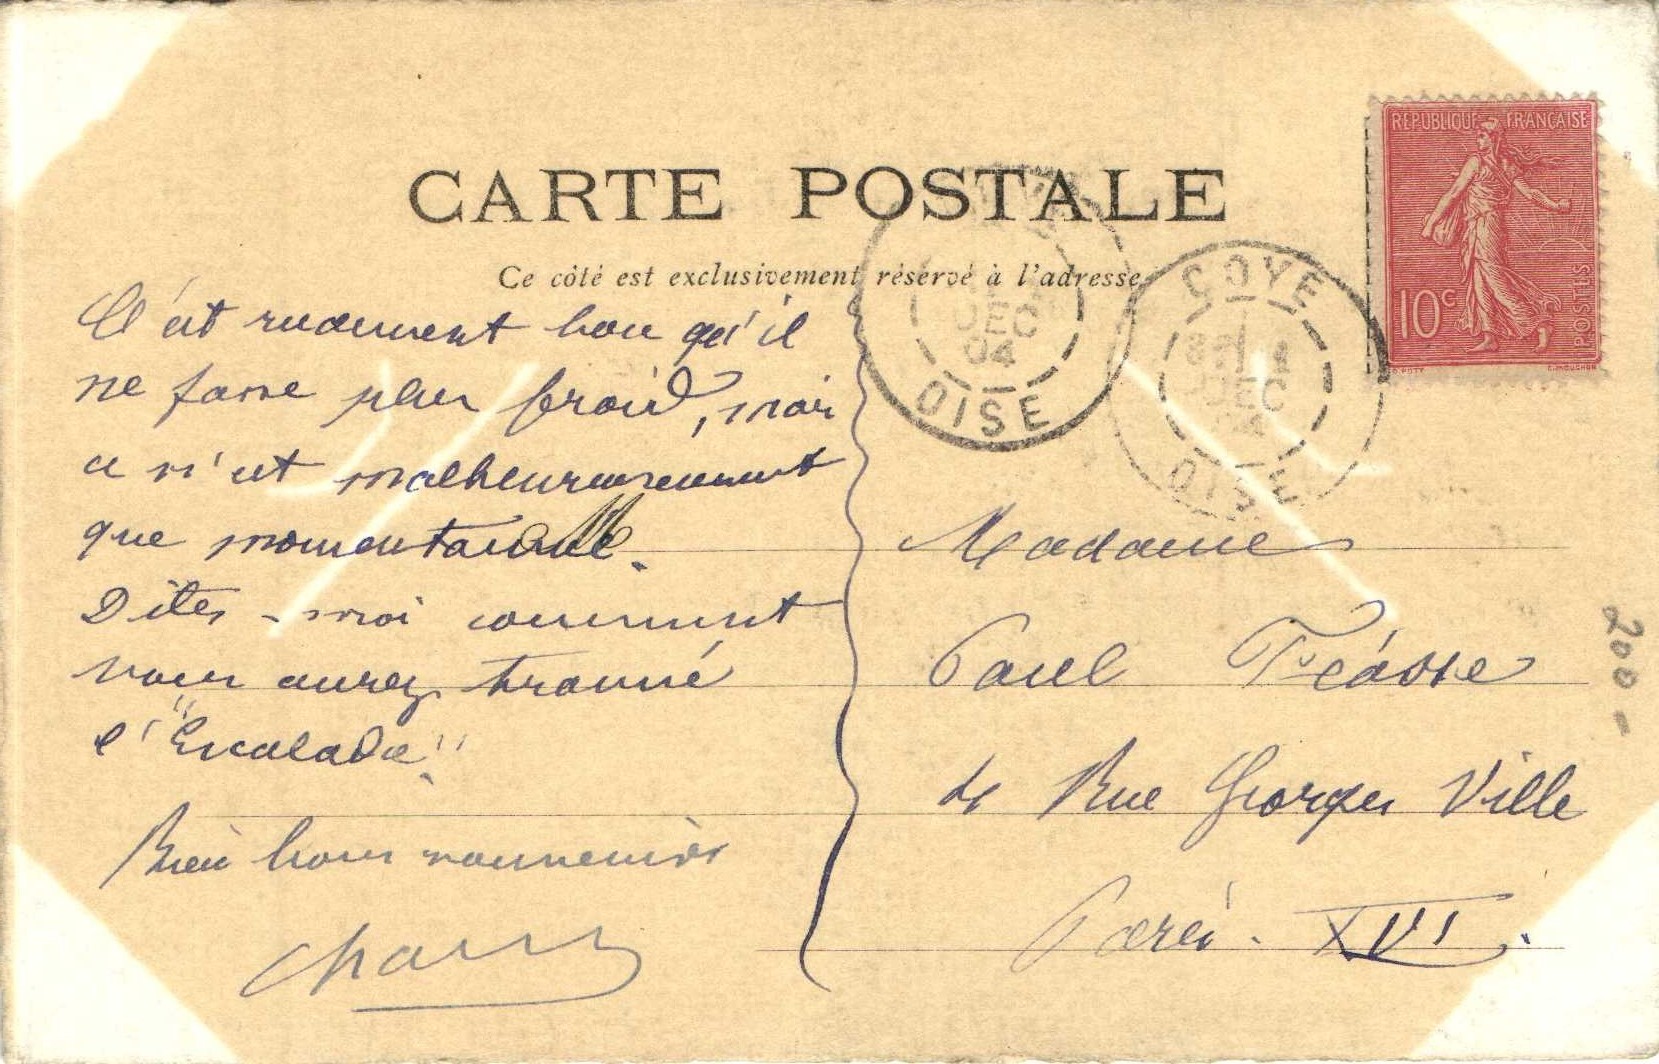 RÉPUBLIQUE FRANÇAISE
10c
POSTES
CARTE POSTALE
Ce côté est exclusivement réservé à l'adresse
DEC
04
OISE
COYE
DEC
04
OISE
C'est rudement bon qu'il
ne fasse plus froid, mais
ce n'est malheureusement
que momentanné.
Dites-moi comment
vous aurez trouvé
l'"Escalade".
Bien bons souvenirs
Madame
Paul
4 Rue Georges Ville
Paris. XVI.
200-